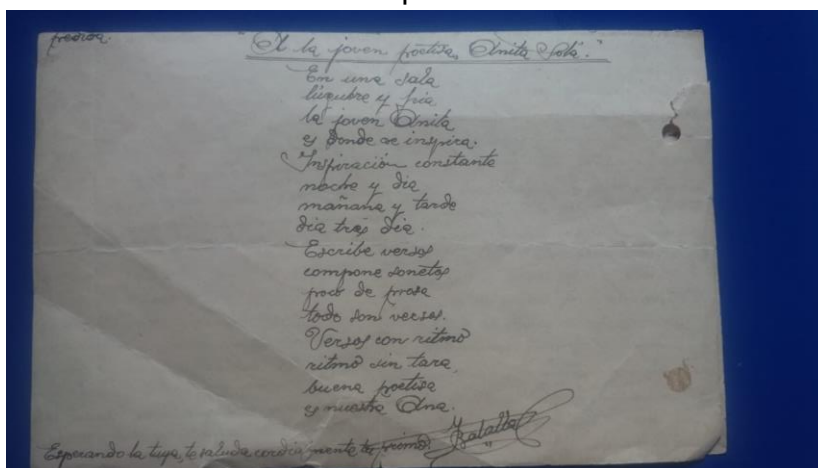 preciosa.
"A la joven poetisa, Anita Solá."
En una sala
lúgubre y fría
la joven Anita
es donde se inspira.
Inspiración constante
noche y día
mañana y tarde
día tras día.
Escribe versos
compone sonetos
poco de prosa
todo son versos.
Versos con ritmo
ritmo sin tara,
buena poetisa
es nuestra Ana.
Esperando la tuya, te saluda cordialmente tu primo.